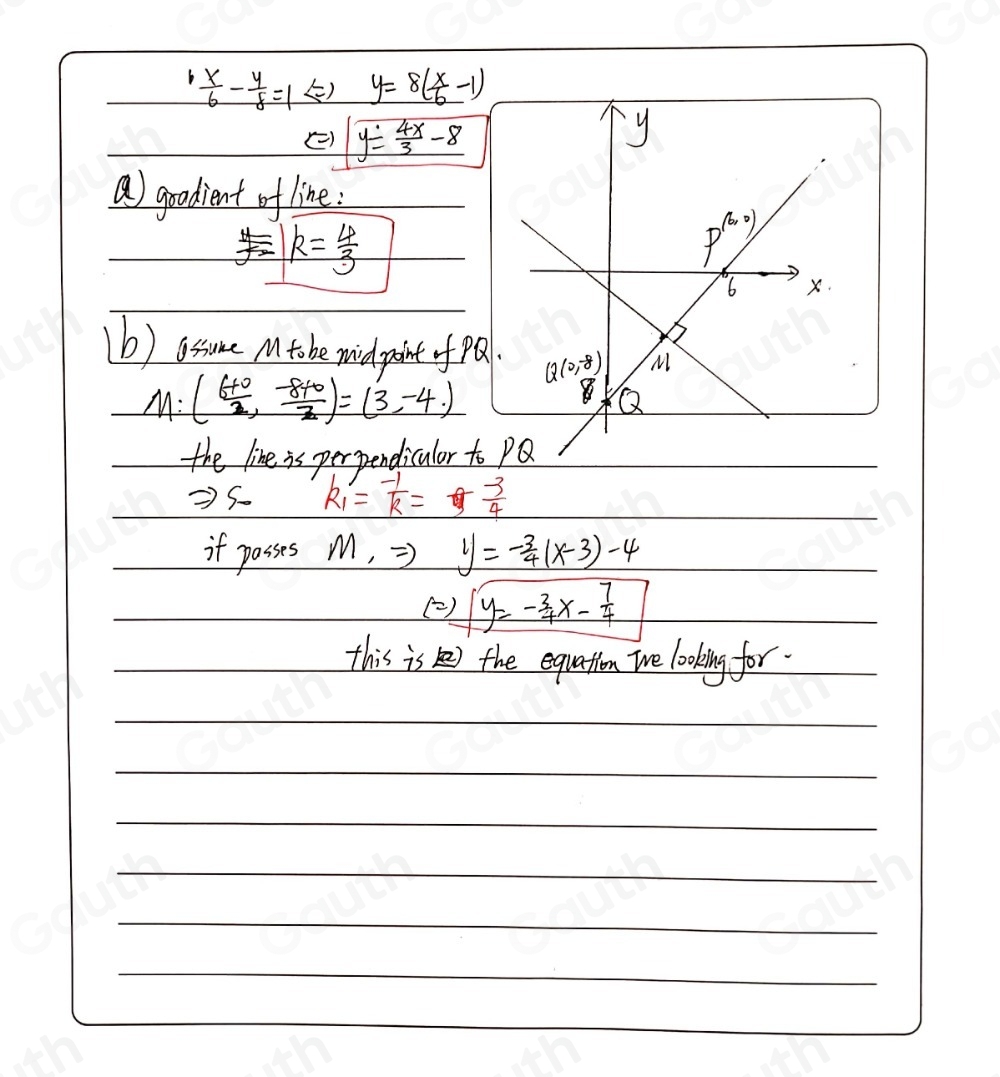 x/6 - y/8 = 1 <=> y = 8(x/6 - 1)
<=> y = 4x/3 - 8
a) gradient of line:
k = 4/3
(b) assume M to be midpoint of PQ.
M: (6+0/2, -8+0/2) = (3, -4.)
the line is perpendicular to PQ
=> So k1 = -1/k = 3/4
it passes M, => y = -3/4(x-3) - 4
(=) y = -3/4x - 7/4
this is the equation we looking for.
y
P (6,0)
6
x.
M
Q(0,-8)
8 Q
Gauth